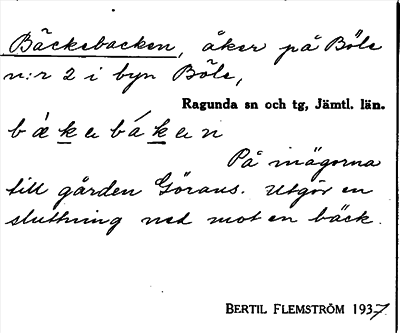 Bäckebacken, åker på Böle
n:r 2 i byn Böle,
Ragunda sn och tg, Jämtl. län.
På inägorna
till gården Görans. Utgör en
sluttning ned mot en bäck.
BERTIL FLEMSTRÖM 1937